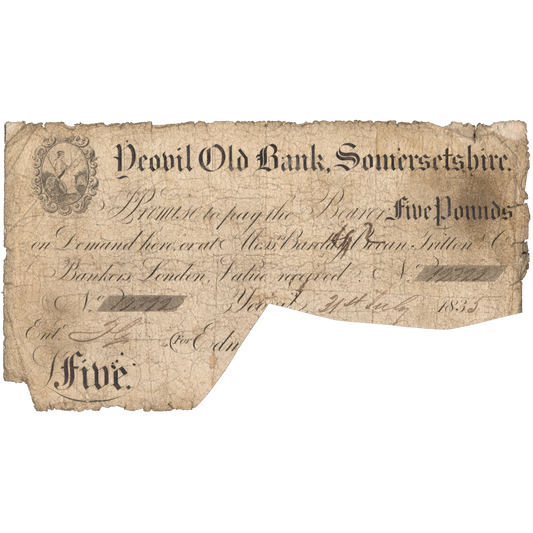 Yeovil Old Bank, Somersetshire.
I Promise to pay the Bearer Five Pounds
on Demand here, or at Mess.rs Barclay, Bevan, Tritton & Co
Bankers, London, Value received. No.
No. Yeovil 21st July 1835
Ent.d For Edm
Five.